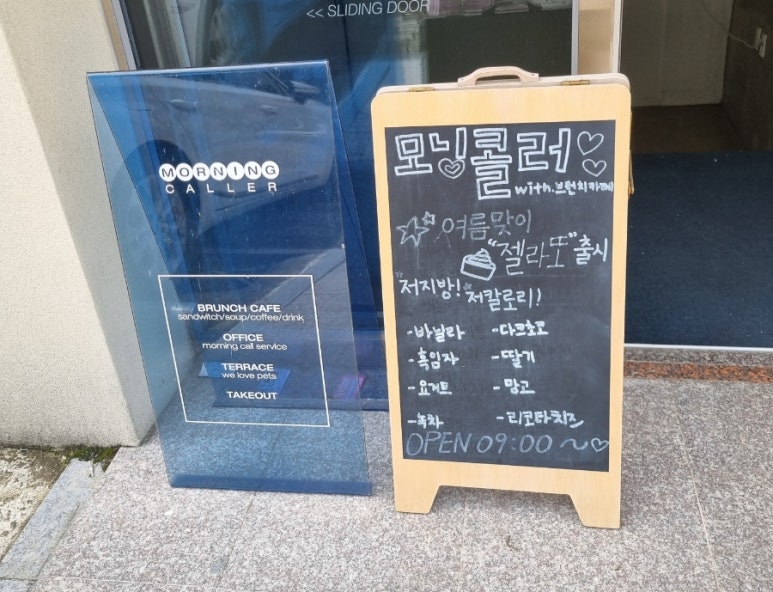 << SLIDING DOOR
MORNING
CALLER
BRUNCH CAFE
sandwitch/soup/coffee/drink
OFFICE
morning call service
TERRACE
we love pets
TAKEOUT
모닝콜러
with.브런치카페
여름맞이
"젤라또"출시
저지방! 저칼로리!
-바닐라 -다크초코
-흑임자 -딸기
-요거트 -망고
-녹차 -리코타치즈
OPEN 09:00 ~♡